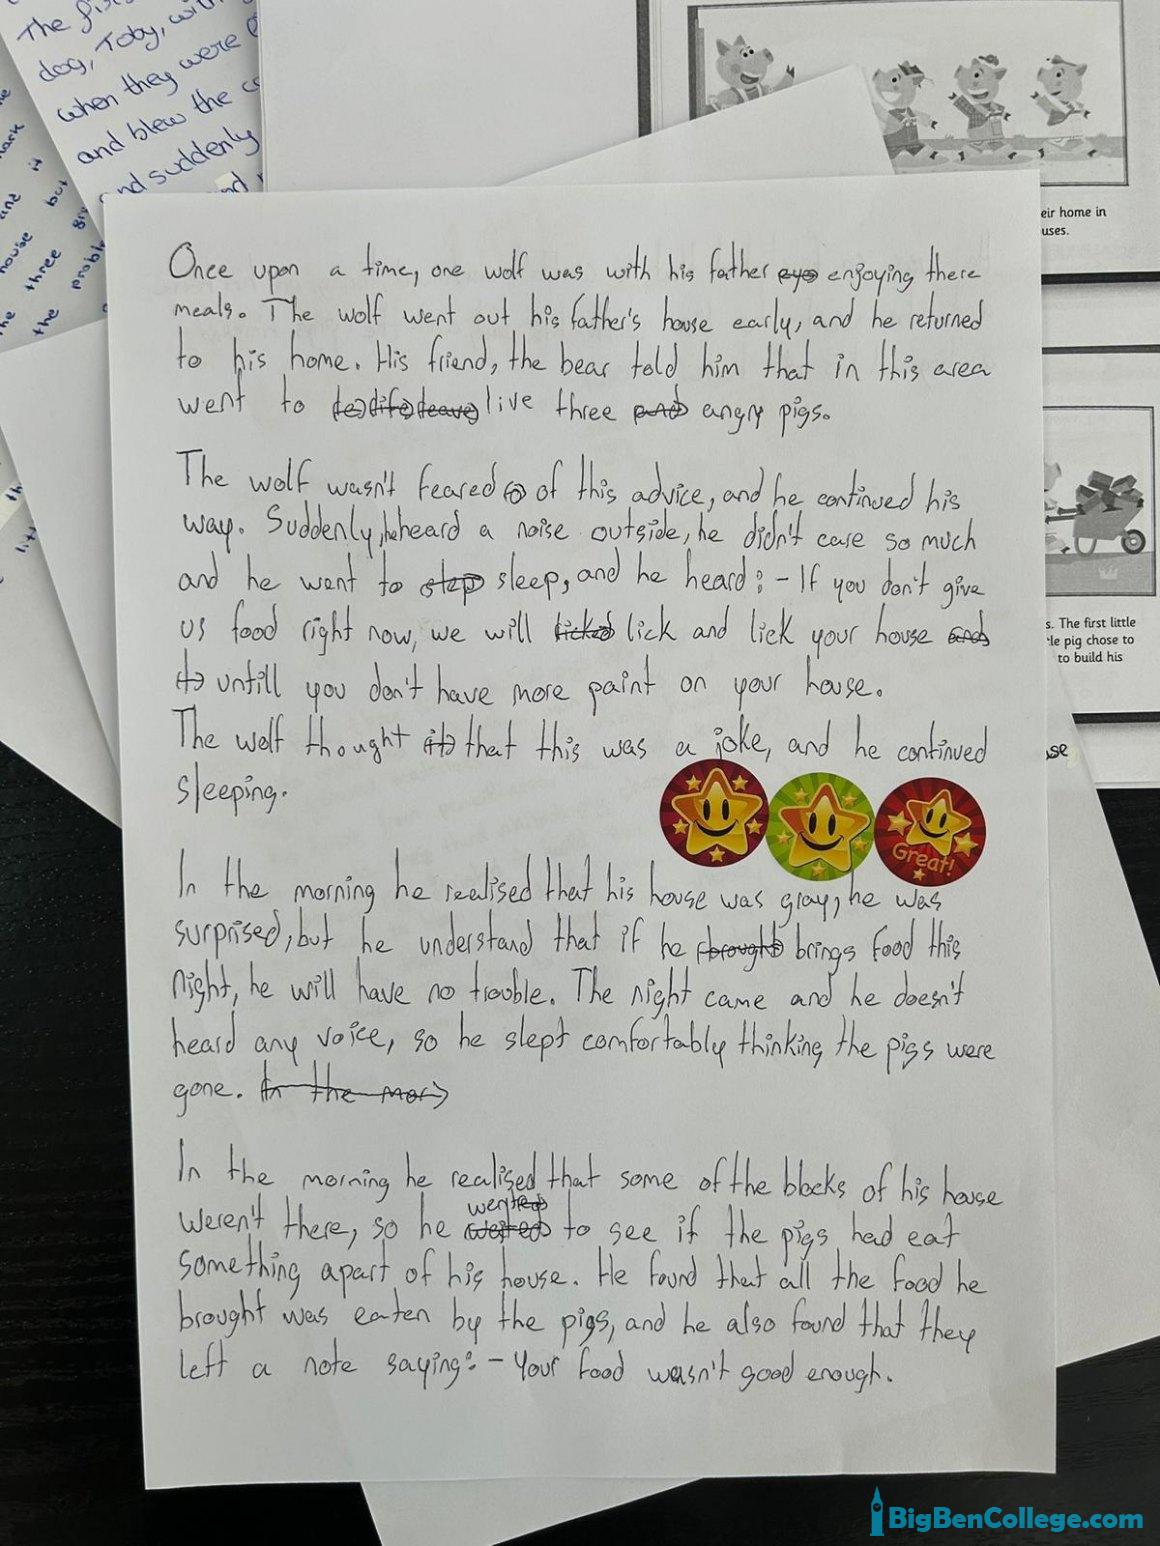 The firs
dog, Toby, wi
when they were
and blew the c
and suddenly
eir home in
uses.
Once upon a time, one wolf was with his father eyo enjoying there
meals. The wolf went out his father's house early, and he returned
to his home. His friend, the bear told him that in this area
went to live three and angry pigs.
The wolf wasn't feared of this advice, and he continued his
way. Suddenly, he heard a noise outside, he didn't care so much
and he went to slep sleep, and he heard: - If you don't give
us food right now, we will licked lick and lick your house and
it untill you don't have more paint on your house.
The wolf thought it that this was a joke, and he continued
sleeping.
Great!
In the morning he realised that his house was gray, he was
surprised, but he understand that if he brought brings food this
night, he will have no trouble. The night came and he doesn't
heard any voice, so he slept comfortably thinking the pigs were
gone. In the mor
In the morning he realised that some of the blocks of his house
weren't there, so he to see if the pigs had eat
something apart of his house. He found that all the food he
brought was eaten by the pigs, and he also found that they
left a note saying: - Your food wasn't good enough.
s. The first little
le pig chose to
to build his
use
BigBenCollege.com